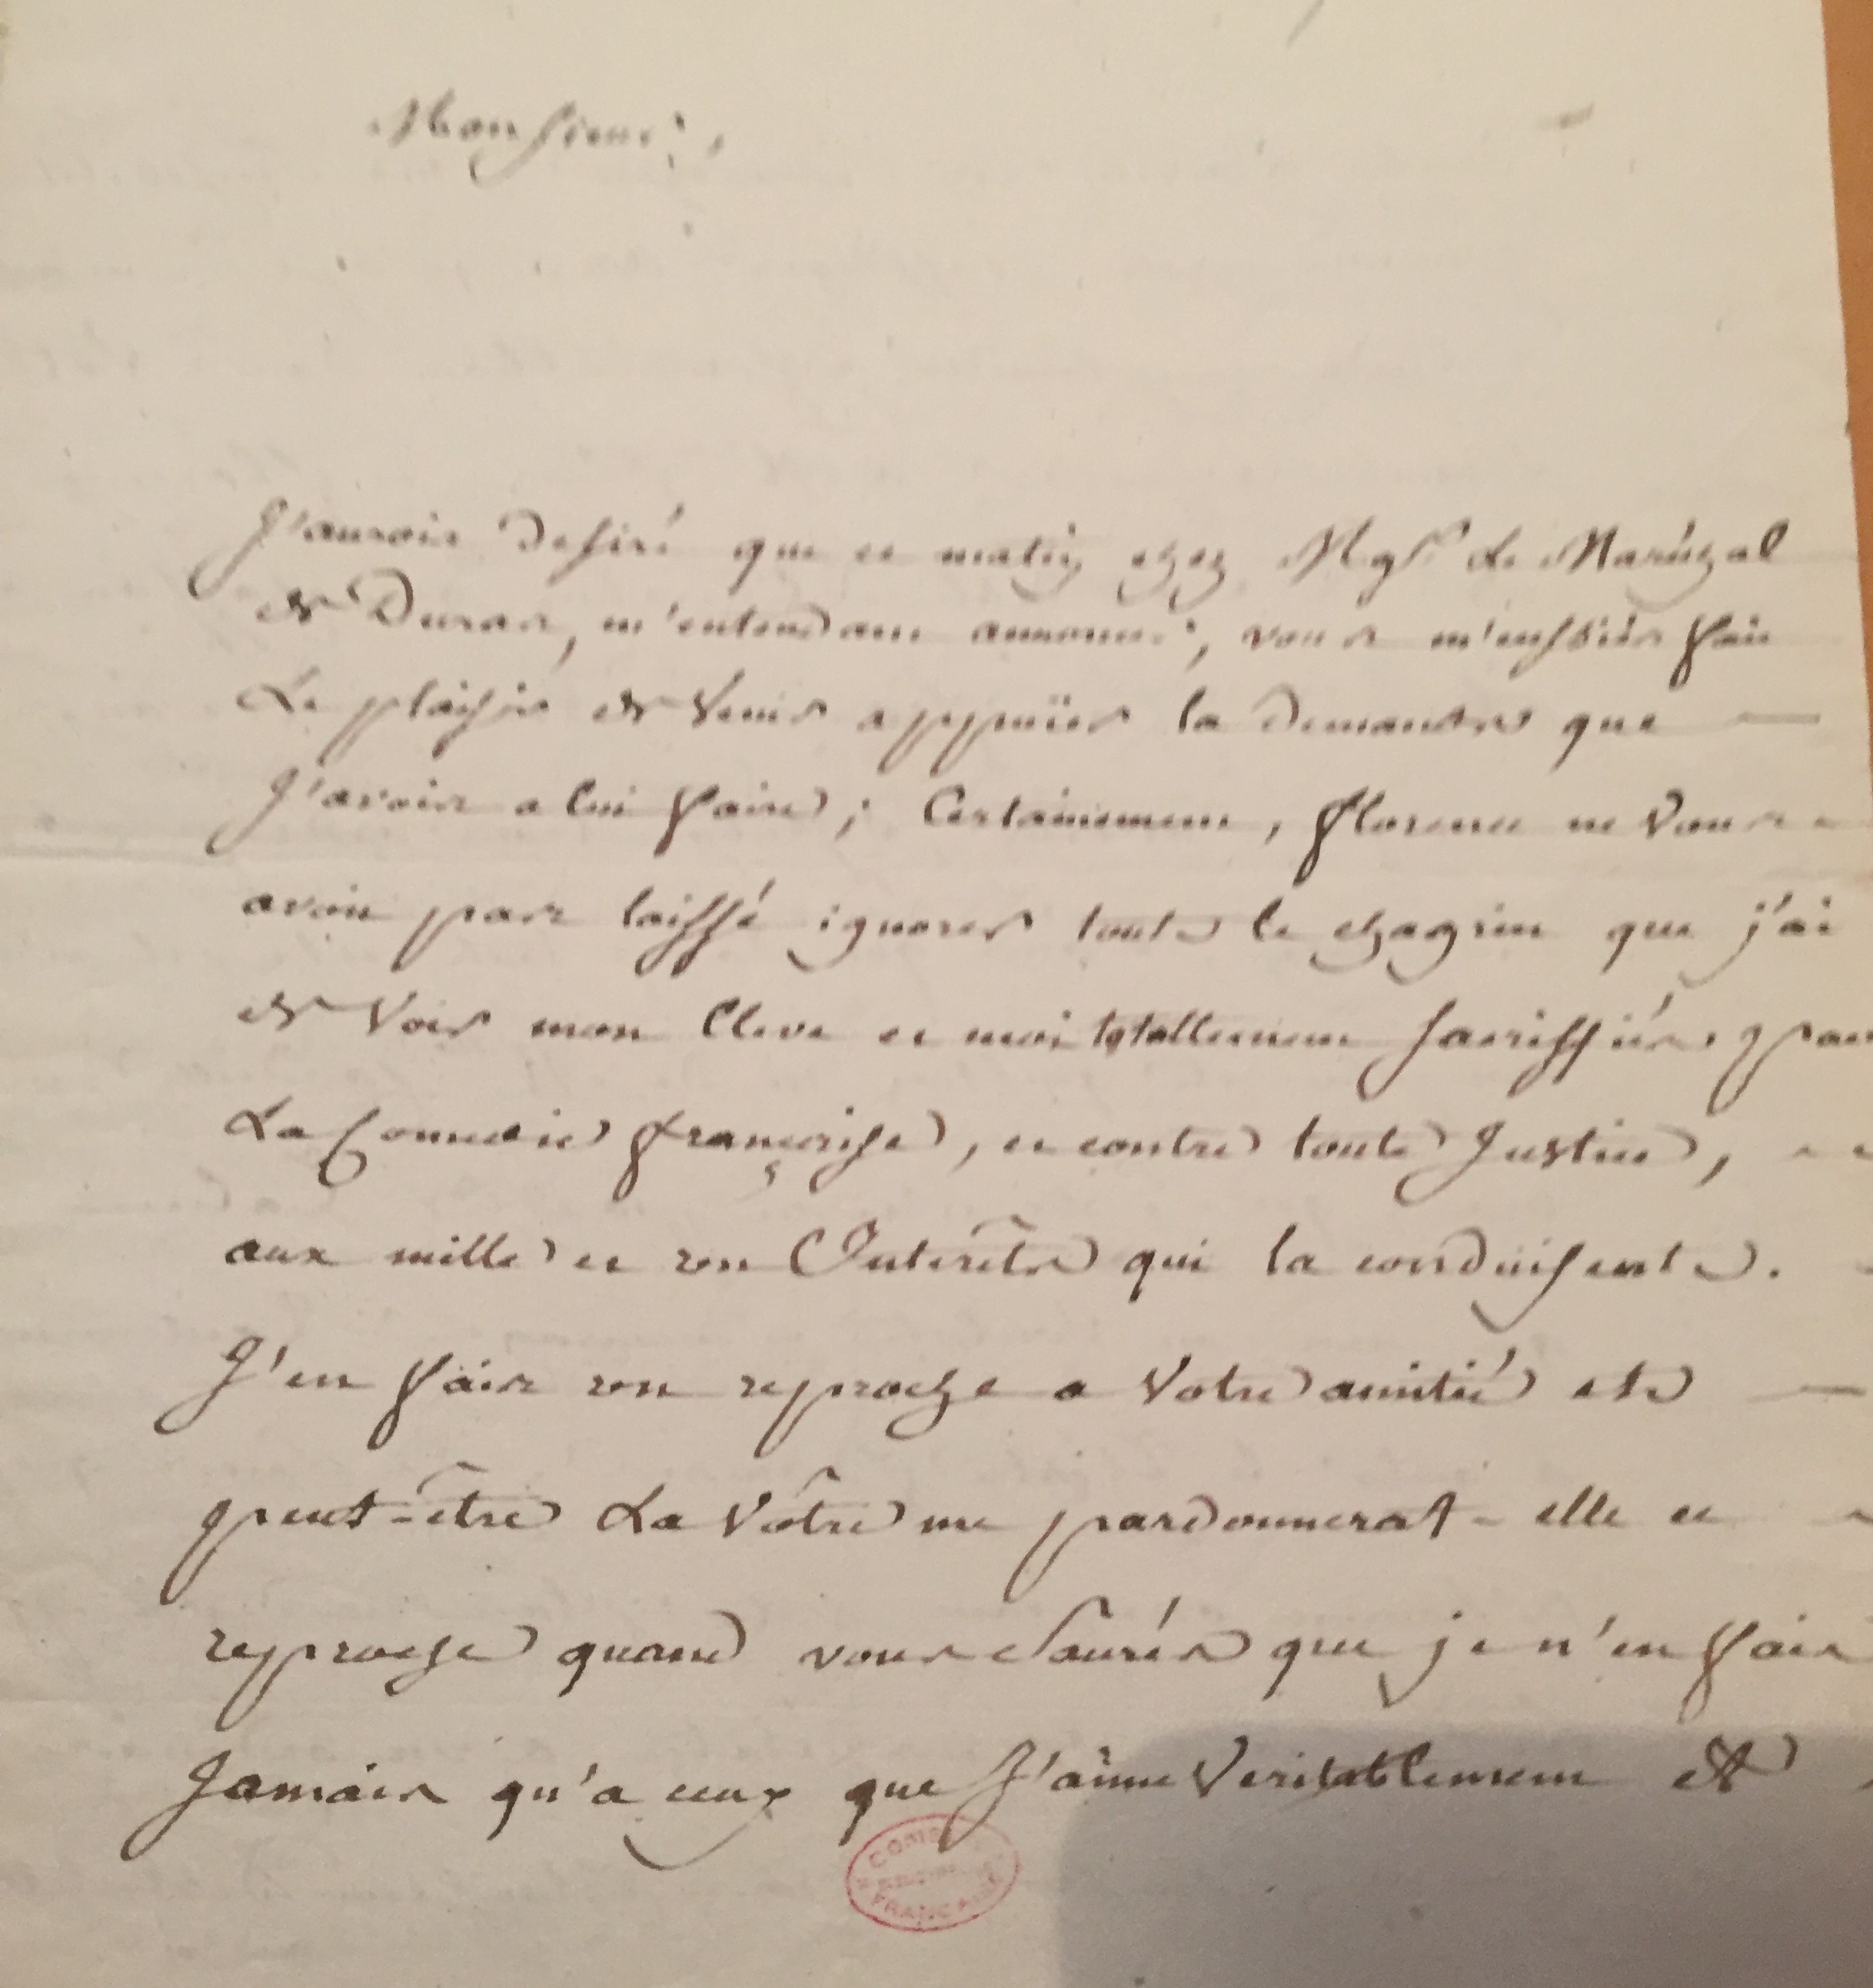 Monsieur,
J'aurois desiré que ce matin chez Mgr. Le Maréchal
de Duras, m'entendant annoncer, vous m'eussiés fait
Le plaisir de venir appuïer la demande que
J'avois a lui faire ; Certainement, florence ne vous
avoit pas laissé ignorer toute le chagrin que j'ai
de Voir mon Eleve et moi totallement sacriffiés, par
La Comedie françoise, et contre toute Justice,
aux mille et un Interêts qui la conduisent.
J'en fais un reproche a Votre amitié et
peut-être La Vôtre me pardonnerat-elle ce
reproche quand vous Saurés que je n'en fais
Jamais qu'a ceux que J'aime Veritablement et
COMÉDIE FRANÇAISE